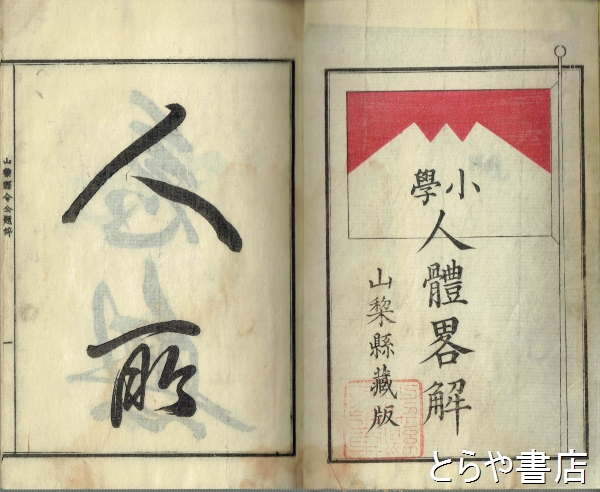 小學
人體畧解
山梨縣藏版
人
所
山梨縣令公題辭
一
とらや書店